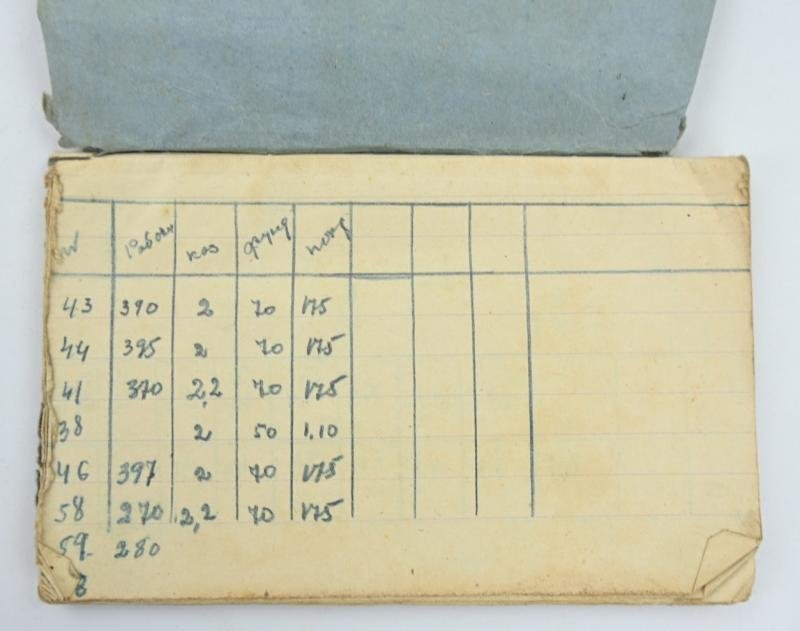 каз фунд
43 390 2 70 175
44 395 2 70 175
41 370 2,2 70 175
38 2 50 1.10
46 397 2 70 175
58 270 2,2 70 175
59 280
8